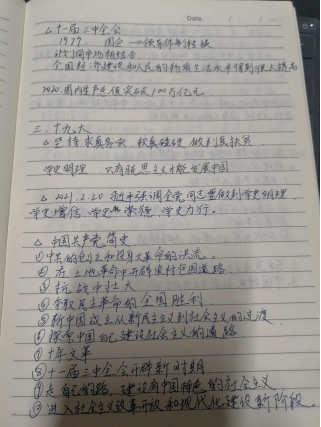 Date. / /
△十一届三中全会
1979. 国企
计划与市场相结合
全国经济建设和人民的物质生活水平得到很大提高
2020.国内生产总值突破100万亿元.
三.十九大
△坚持求真务实、较真碰硬 做到真扶贫
学史明理 只有社会主义才能发展中国
△2021.2.20 强调全党同志要做到学史明理.
学史增信、学史崇德、学史力行。
△中国共产党简史
①中共的创立和投身大革命的洪流.
②在土地革命中开辟农村包围道路
③抗战中壮大
④夺取民主革命的全国胜利
⑤新中国成立从新民主主义到社会主义的过渡
⑥探索中国自己建设社会主义的道路
⑦十年文革
⑧十一届三中全会开辟新时期
⑨走自己的路、建设有中国特色的社会主义
⑩进入社会主义改革开放和现代化建设新阶段。